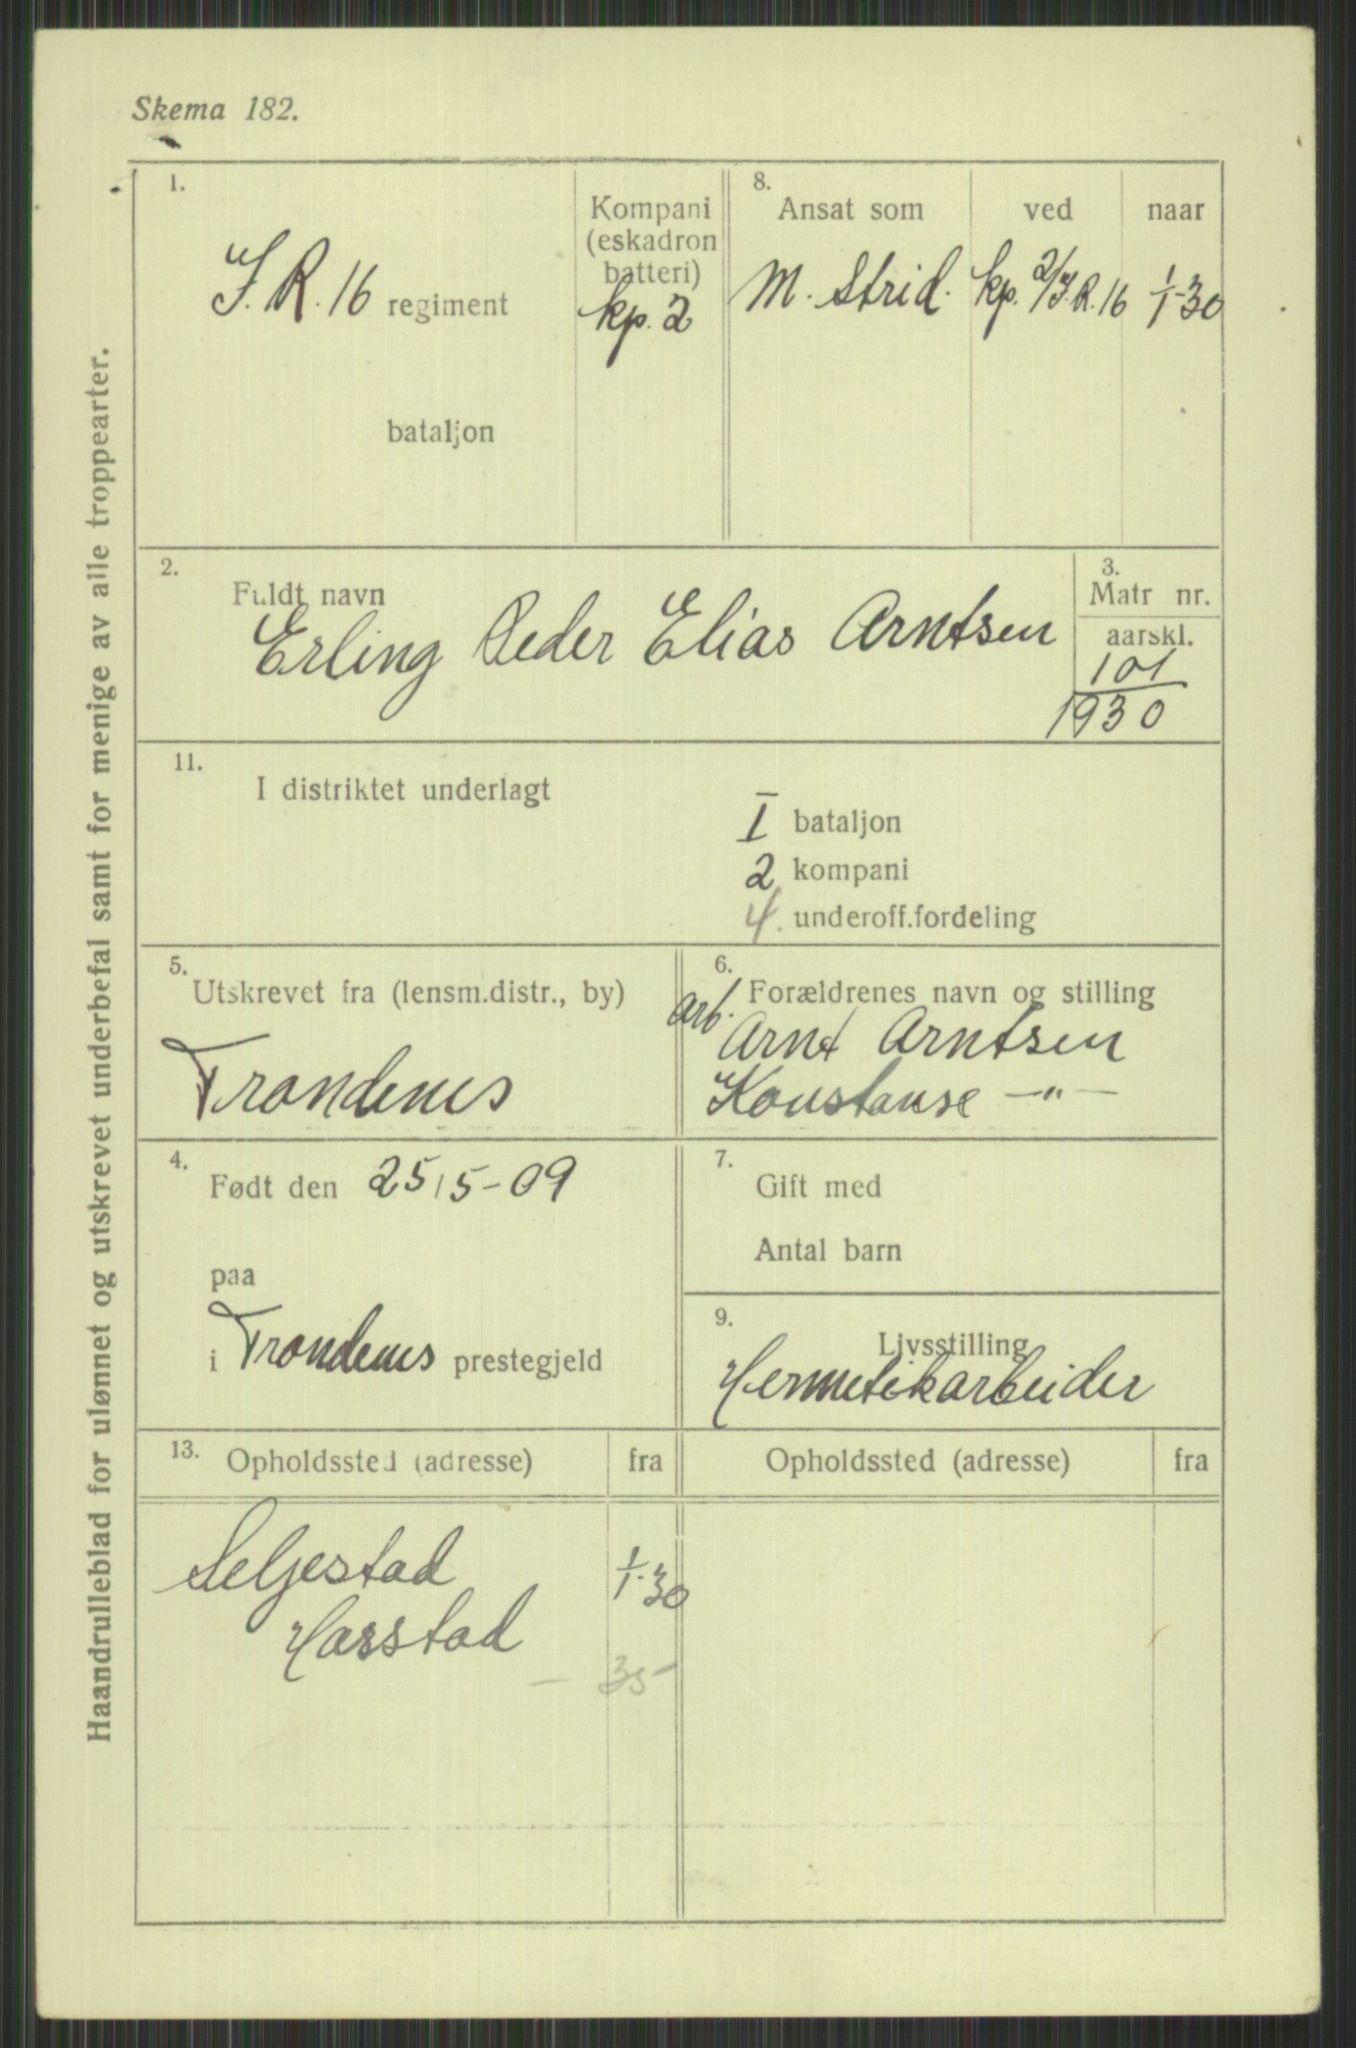 Skema 182.
Haandrulleblad for ulønnet og utskrevet underbefal samt for menige av alle troppearter.
1.
I.R. 16 regiment
bataljon
Kompani
(eskadron
batteri)
kp. 2
8.
Ansat som ved naar
M. Strid. kp. 2/I.R. 16 1/1-30
2.
Fuldt navn
Erling Peder Elias Arntsen
3.
Matr nr.
aarskl.
101
1930
11.
I distriktet underlagt
I bataljon
2 kompani
4. underoff.fordeling
5.
Utskrevet fra (lensm.distr., by)
Trondenes
6.
Forældrenes navn og stilling
arb. Arnt Arntsen
Konstanse —"—
4.
Født den 25/5-09
paa
i Trondenes prestegjeld
7.
Gift med
Antal barn
9.
Livsstilling
Hermetikarbeider
13.
Opholdssted (adresse) fra Opholdssted (adresse) fra
Seljestad 1/1-30
Harstad
— 35 —